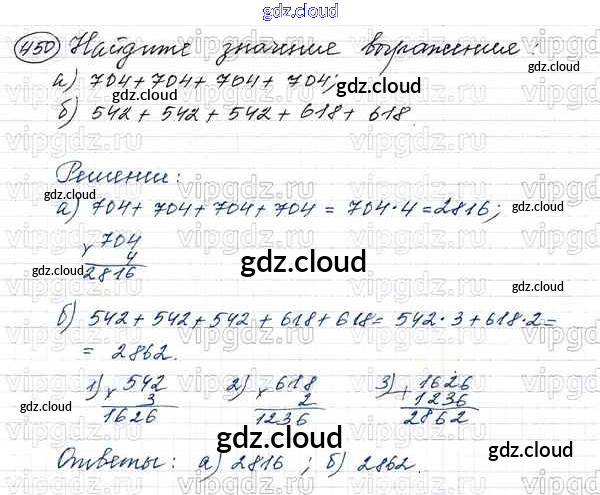 gdz.cloud
450 Найдите значение выражения:
а) 704 + 704 + 704 + 704;
gdz.cloud
gdz.cloud
б) 542 + 542 + 542 + 618 + 618.
vipgdz.ru
Решение:
gdz.cloud
gdz.cloud
а) 704 + 704 + 704 + 704 = 704 · 4 = 2816;
× 704
4
2816
gdz.cloud
gdz.cloud
б) 542 + 542 + 542 + 618 + 618 = 542 · 3 + 618 · 2 =
= 2862.
1) × 542 2) × 618 3) + 1626
3 2 1236
1626 1236 2862
gdz.cloud
gdz.cloud
gdz.cloud
Ответы: а) 2816 ; б) 2862.
gdz.cloud